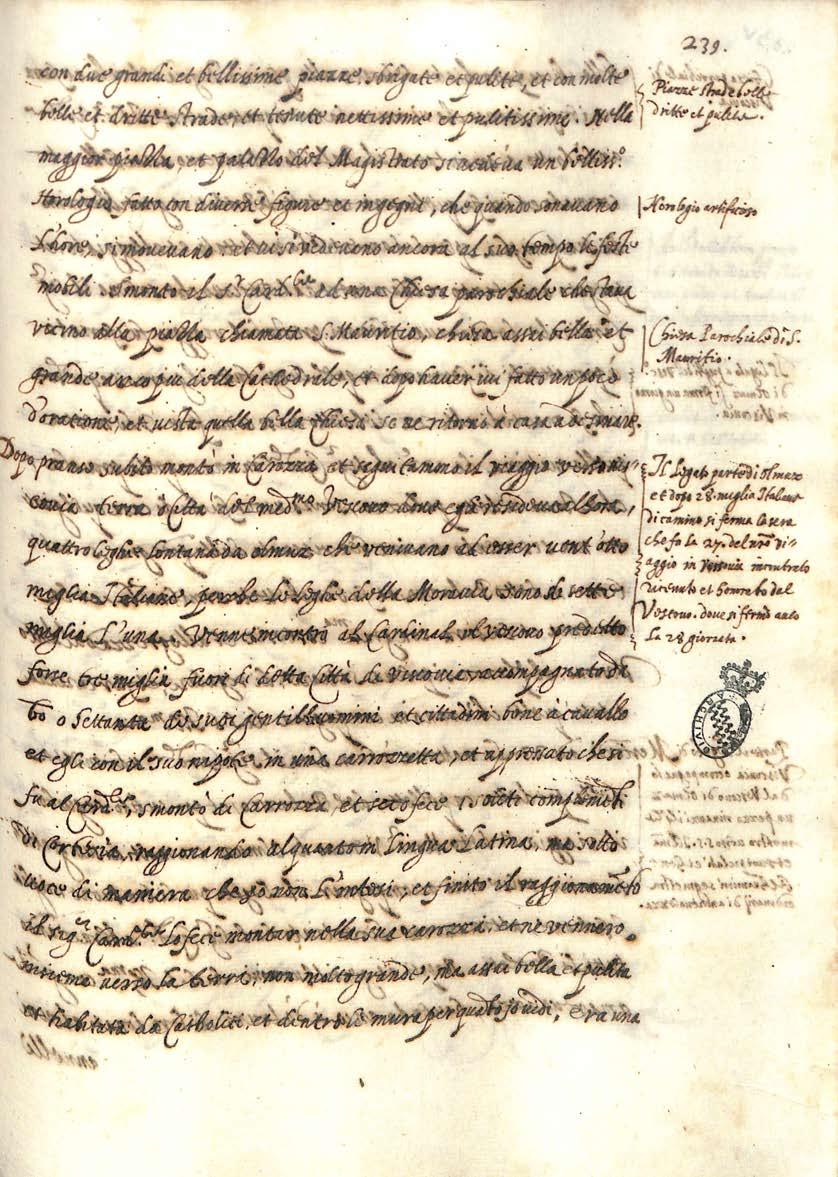 239.
con due grandi et bellissime piazze sbrigate et pulite, et con molte
belle et dritte strade, et tenute nettissime et pulitissime. Nella
maggior piazza, et palazzo del Magistrato si vedeva un belliss.o
Horologio fatto con diverse figure et ingegni, che quando sonavano
l'hore, si movevano et vi si vedevano ancora al suo tempo le feste
mobili. smontò il s.r Card.le ad una Chiesa parochiale che stava
vicino alla piazza chiamata S. Mauritio, chiesa assai bella et
grande anco più della Cathedrale, et dopo haver ivi fatto un poco
d'oratione, et vista quella bella Chiesa se ne ritornò à casa a desinare.
Dopo pranso subito montò in Carozza et seguitammo il viaggio verso Vis-
covia terra ò Città del med.mo Vescovo dove egli resideva alhora,
quattro leghe lontana da olmuz che venivano ad esser vent'otto
miglia Italiane, perche le leghe della Moravia sono de sette
miglia l'una. Venne incontro al Cardinal il vescovo predetto
forse tre miglia fuori di detta Città di viscovia accompagnato da
60 o settanta de suoi gentilhuomini et cittadini bene à cavallo
et egli con il suo nipote in una carrozzetta, et appressato che si
fu al Card.le, smontò di Carrozza, et seco fece i soliti complimenti
di Cortesia, raggionando alquanto in lingua Latina, ma sotto
voce di maniera che io non l'intesi, et finito il raggionamento
il sig.r Card.le lo fece montar nella sua carozza, et ne vennero
insieme verso la terra, non molto grande, ma assai bella et pulita
et habitata da Catholici, et dentro le mura per quanto io vidi, era una
Piazze strade belle
dritte et pulite.
Horologio artificioso
Chiesa Parochiale di S.
Mauritio.
Il Legato parte di olmuz
et dopo 28. miglia Italiane
di camino si ferma la sera
che fa la 27. del nro vi-
aggio in Vescovia incontrato
ricevuto et honorato dal
Vescovo. dove si fermò anco
la 28 giornata.